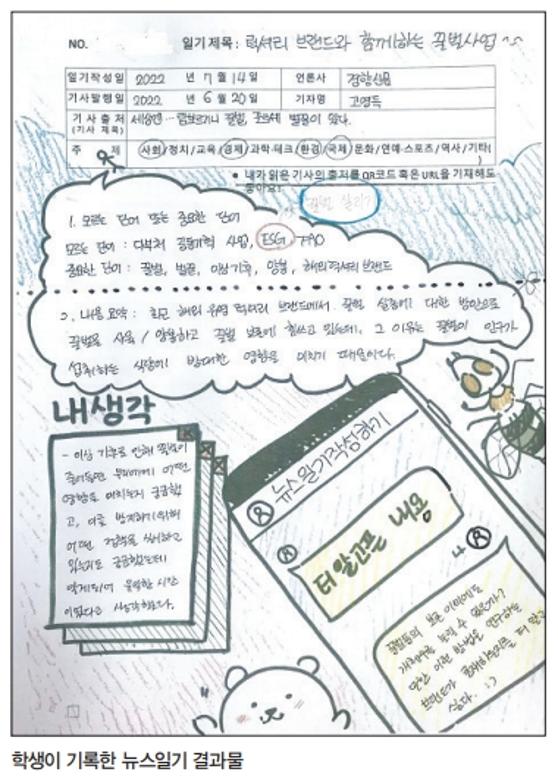 NO. 일기 제목: 럭셔리 브랜드와 함께하는 꿀벌사업~
일기작성일 2022 년 7 월 14 일 언론사 경향신문
기사발행일 2022 년 6 월 20 일 기자명 고영득
기사 출처 (기사 제목) 세상엔… 꿀벌, 벌꿀이 있다.
주 제 사회/정치/교육/경제/과학·테크/환경/국제/문화/연예·스포츠/역사/기타( )
● 내가 읽은 기사의 출처를 QR코드 혹은 URL을 기재해도
좋아요!
꿀벌 살리기
1. 모르는 단어 또는 중요한 단어
모르는 단어 : 다부처 공동기획 사업, ESG, FAO
중요한 단어 : 꿀벌, 벌꿀, 이상기후, 양봉, 해외 럭셔리 브랜드
2. 내용 요약 : 최근 해외 유명 럭셔리 브랜드에서 꿀벌 실종에 대한 방안으로
꿀벌을 사육 / 양봉하고 꿀벌 보호에 힘쓰고 있는데, 그 이유는 꿀벌이 인구가
섭취하는 식량에 방대한 영향을 미치기 때문이다.
내 생각
- 이상 기후로 인해 꿀벌이
줄어들면 우리에게 어떤
영향을 미치는지 궁금했
고, 이를 방지하기 위해
어떤 정책을 실시하고
있는지도 궁금했는데
알게되어 유익한 시간
이었다고 생각한다.
뉴스 일기 작성하기
더 알고픈 내용
나
꿀벌들의 보호 이외에도
개체수를 늘릴 수 있을까?
또한 이런 방법을 연구하는
브랜드가 존재하는지를 더 알고
싶다. :)
학생이 기록한 뉴스일기 결과물